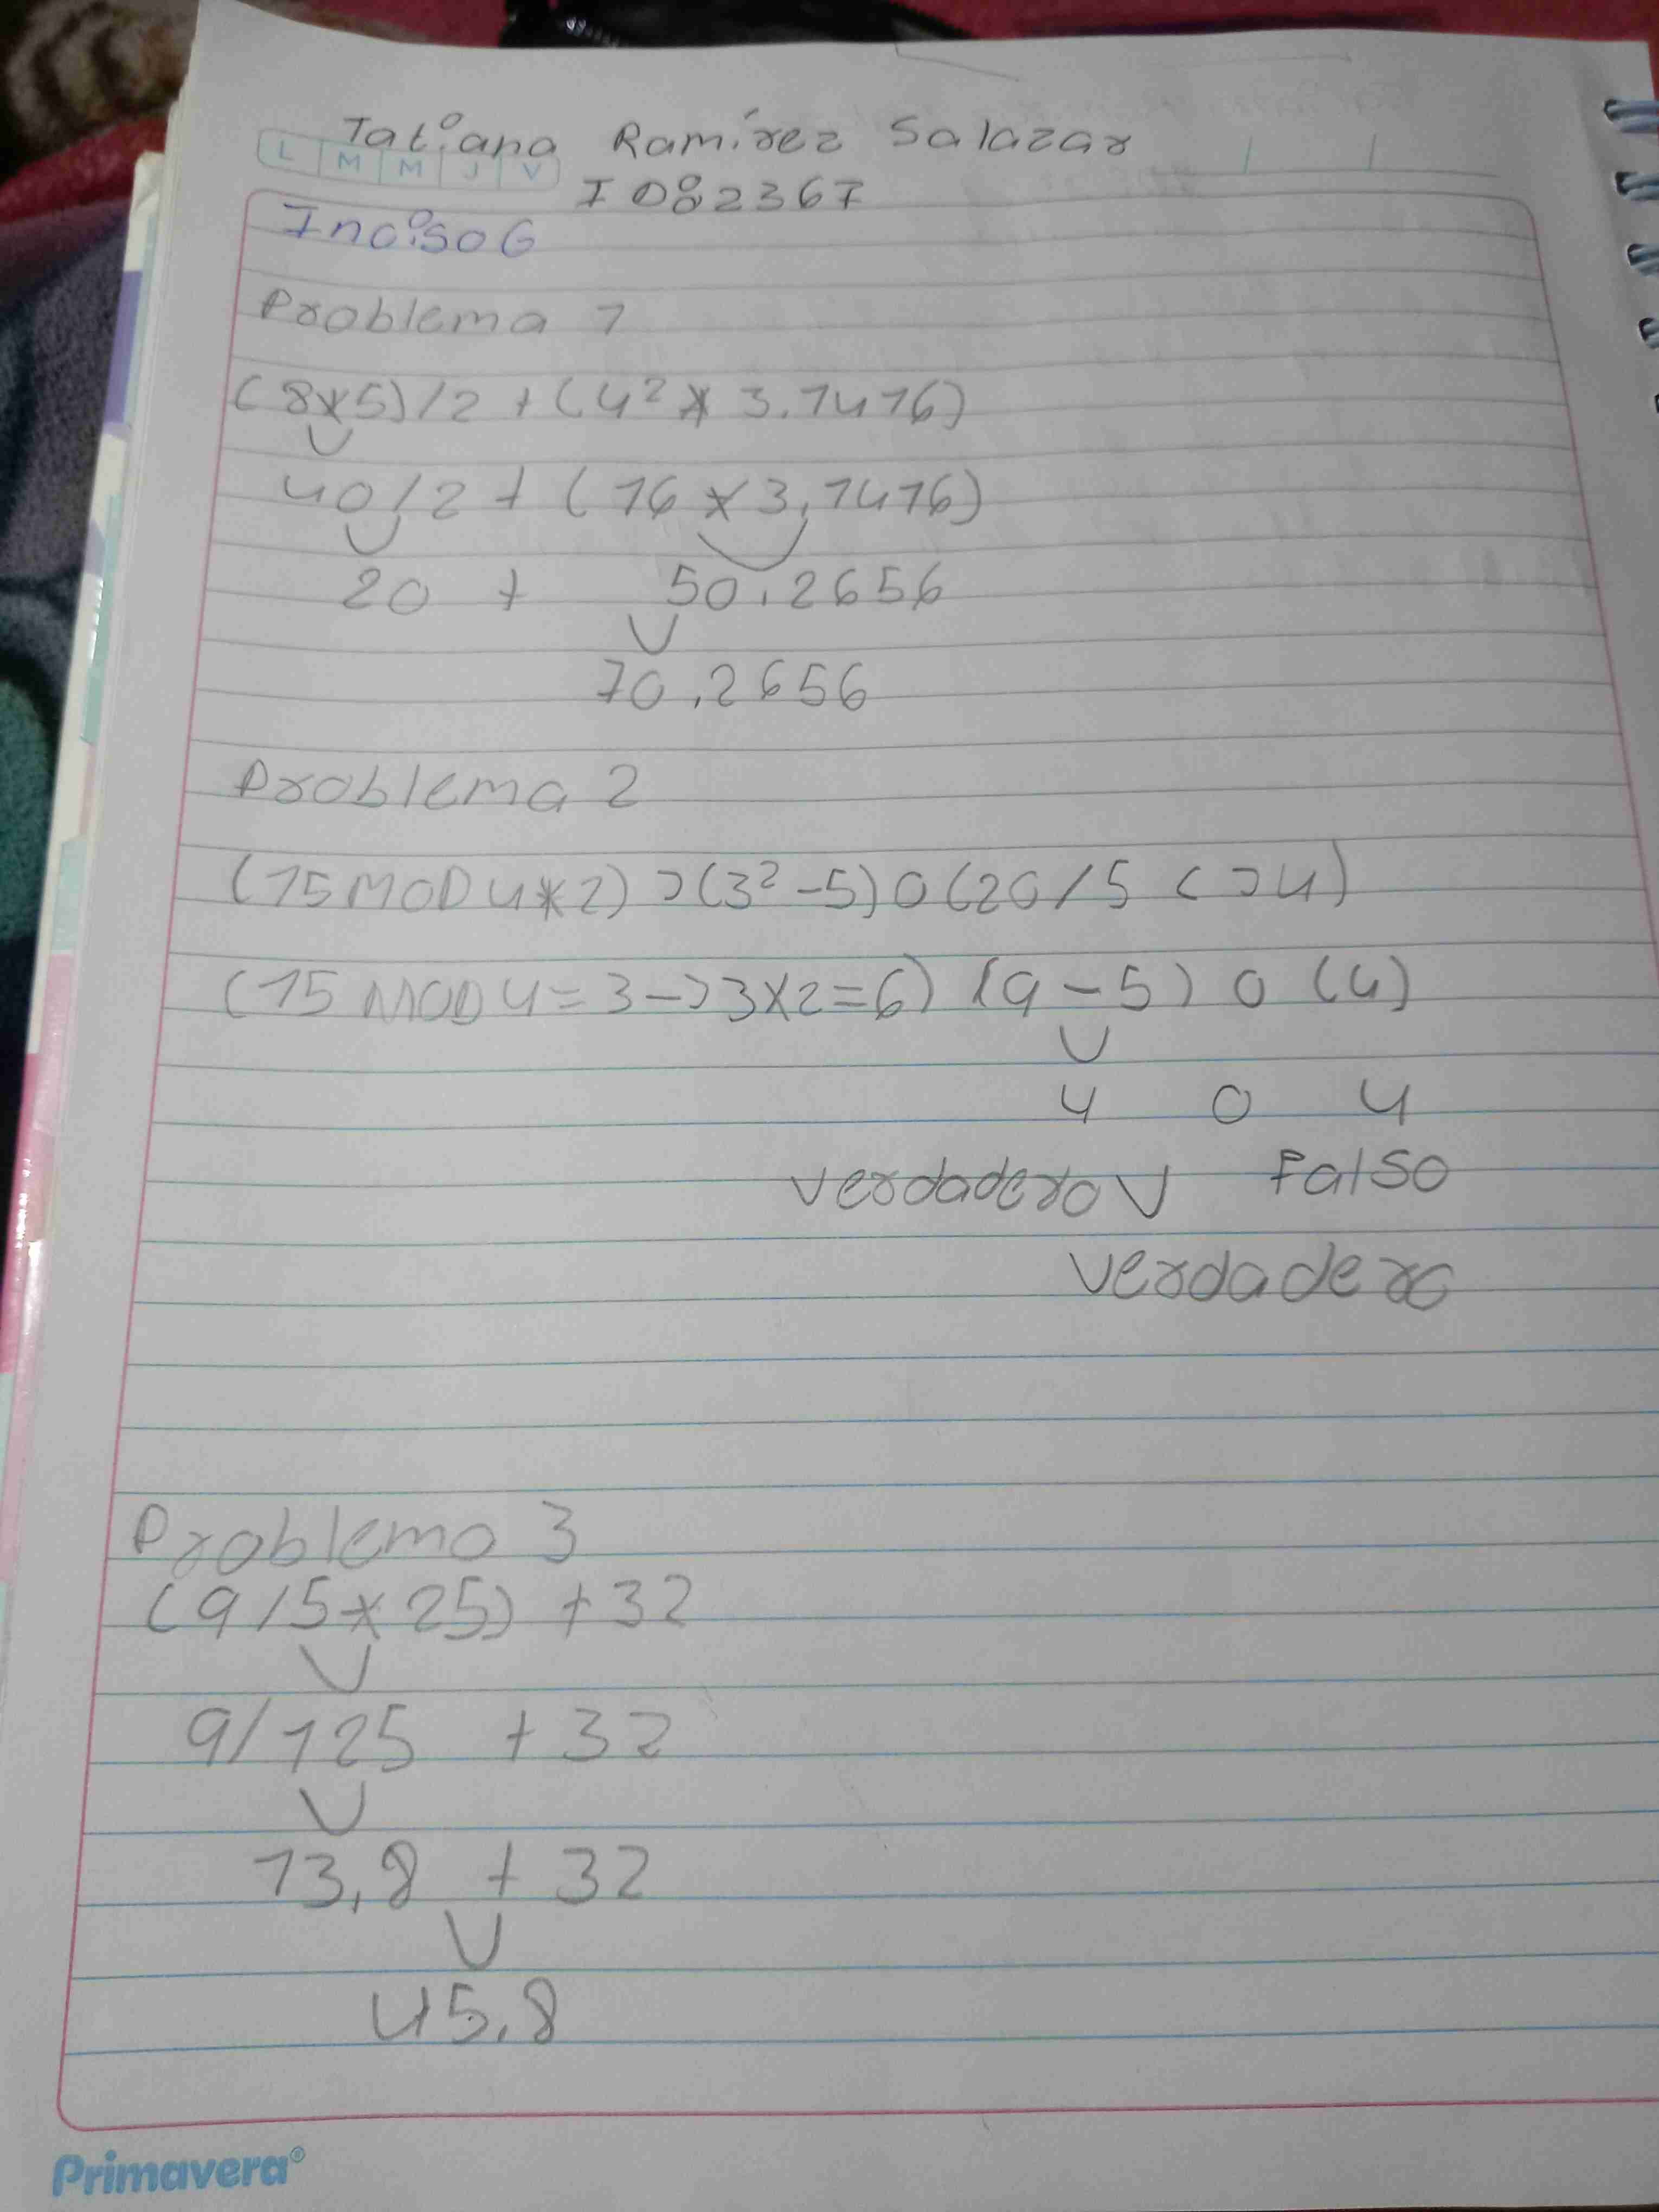 Tatiana Ramírez Salazar
L M M J V
I082367
Inciso G
Problema 1
(8*5)/2 + (4² * 3.1416)
40/2 + (16 * 3,1416)
20 + 50.2656
70,2656
Problema 2
(15 MOD 4*2) > (3² - 5) O (20/5 < > 4)
(15 MOD 4 = 3 -> 3 x 2 = 6) (9 - 5) O (4)
4 O 4
Verdadero V Falso
Verdadero
Problema 3
(9/5 * 25) + 32
9/125 + 32
13,8 + 32
45.8
Primavera®